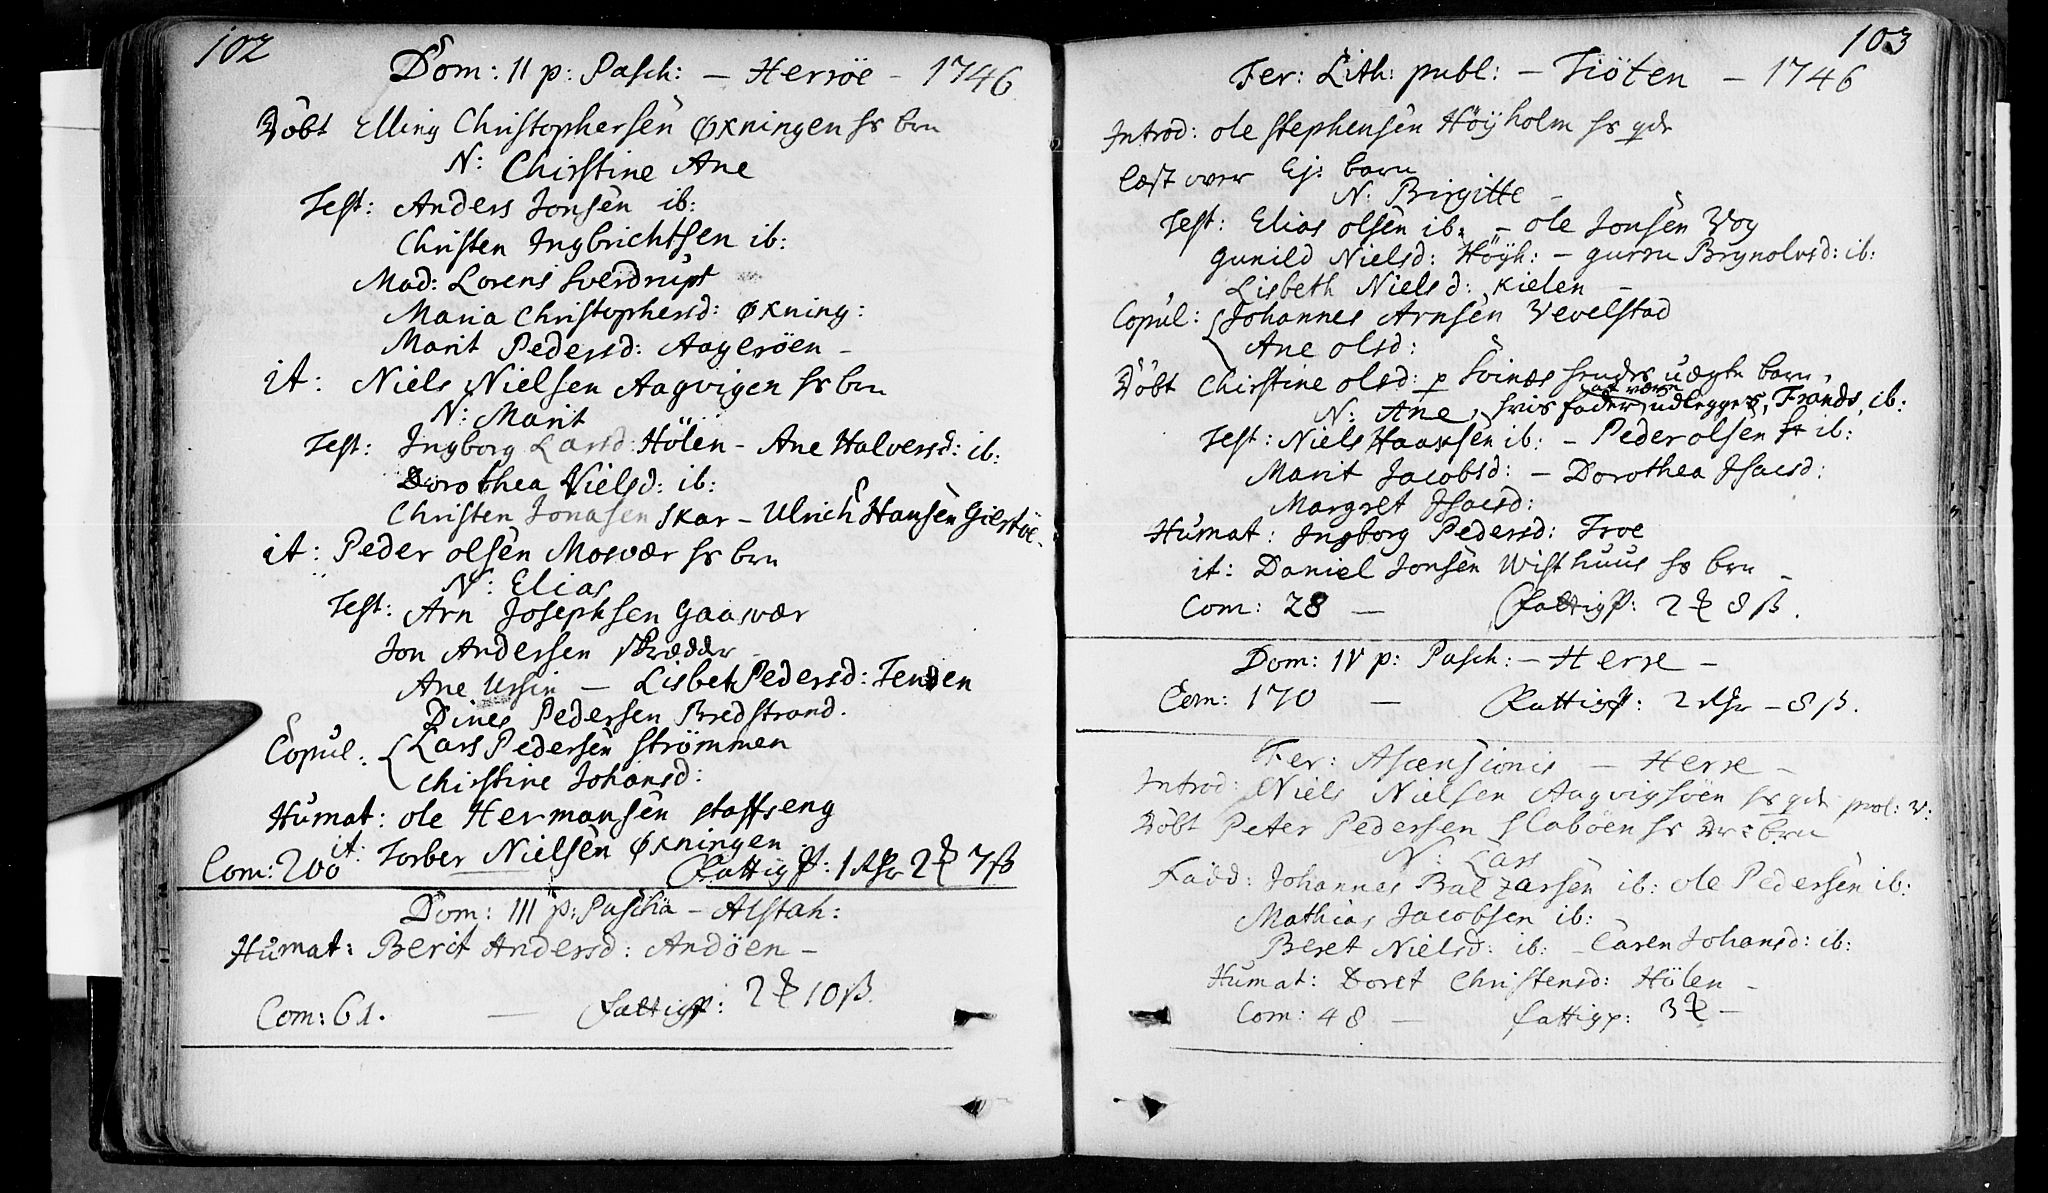 102
Dom: II p: Pasch: – Herröe – 1746
Döbt Elling Christophersen Øxningen hs brn
N: Chirstine Ane
Test: Anders Jonsen ib:
Christen Ingbrichtsen ib:
Mad: Lorens Sverdrups
Maria Christophersd: Øxning:
Marit Pedersd: Aageröen –
it: Niels Nielsen Aagvigen hs brn
N: Marit
Test: Ingborg Larsd: Hölen – Ane Halversd: ib:
Dorothea Nielsd: ib:
Christen Jonasen Skar – Ulrich Hansen Gierköe.
it: Peder olsen Mosvær hs brn
N: Elias
Test: Arn Josephsen Gaasvær
Jon Andersen skrædder –
Ane Ursin – Lisbet Pedersd: Tenden
Dines Pedersen Bredstrand.
Copul: Lars Pedersen Strömmen
Chirstine Johansd:
Humat: ole Hermansen staffseng
it: Torber Nielsen Øxningen
Com: 200 Fattigp: 1 Rdr 2 7 ß
Dom: III p: Pascha – Alstah:
Humat: Berit Andersd: Andöen –
Com: 61. – Fattigp: 2 10 ß.
103
Fer: Lith: publ: – Tiöten – 1746
Introd: ole Stephensen Höÿholm hs qde
Læst over Ej: barn
N: Birgitte –
Test: Elias olsen ib. – ole Jonsen Vog
Gunild Nielsd: Höÿh: – gurru Brynolvsd: ib:
Lisbeth Nielsd: Kielen –
Copul: Johannes Arnsen Vevelstad
Ane olsd:
Döbt Chirstine olsd: p Svinæs hendes uægte barn,
at være
N: Ane, hvis fader udlegges, Frands, ib:
Test: Niels Haaxsen ib: – Peder olsen ib:
Marit Jacobsd: – Dorothea Isacsd:
Margret Isacsd:
Humat: Ingborg Pedersd: Troe
it: Daniel Jonsen Wisthuus hs brn –
Com: 28 – Fattigp: 2 8 ß.
Dom: IV p: Pasch: – Herre –
Com: 170 – Fattigp: 2 Rdr – 8 ß.
Fer: Ascensionis – Herre –
Introd: Niels Nielsen Aagvigsöen hs qde
Döbt Peter Pedersen Slaböen hs brn
N: Lars
Fadd: Johannes Balzarsen ib: ole Pedersen ib:
Mathias Jacobsen ib:
Beret Nielsd: ib: – Caren Johansd: ib:
Humat: Doret Christensd: Hölen –
Com: 48 – fattigp: 3 –